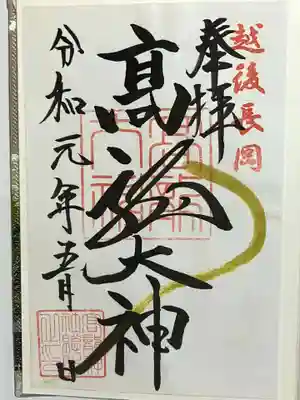 越後長岡
奉拝
高龍大神
令和元年五月 日